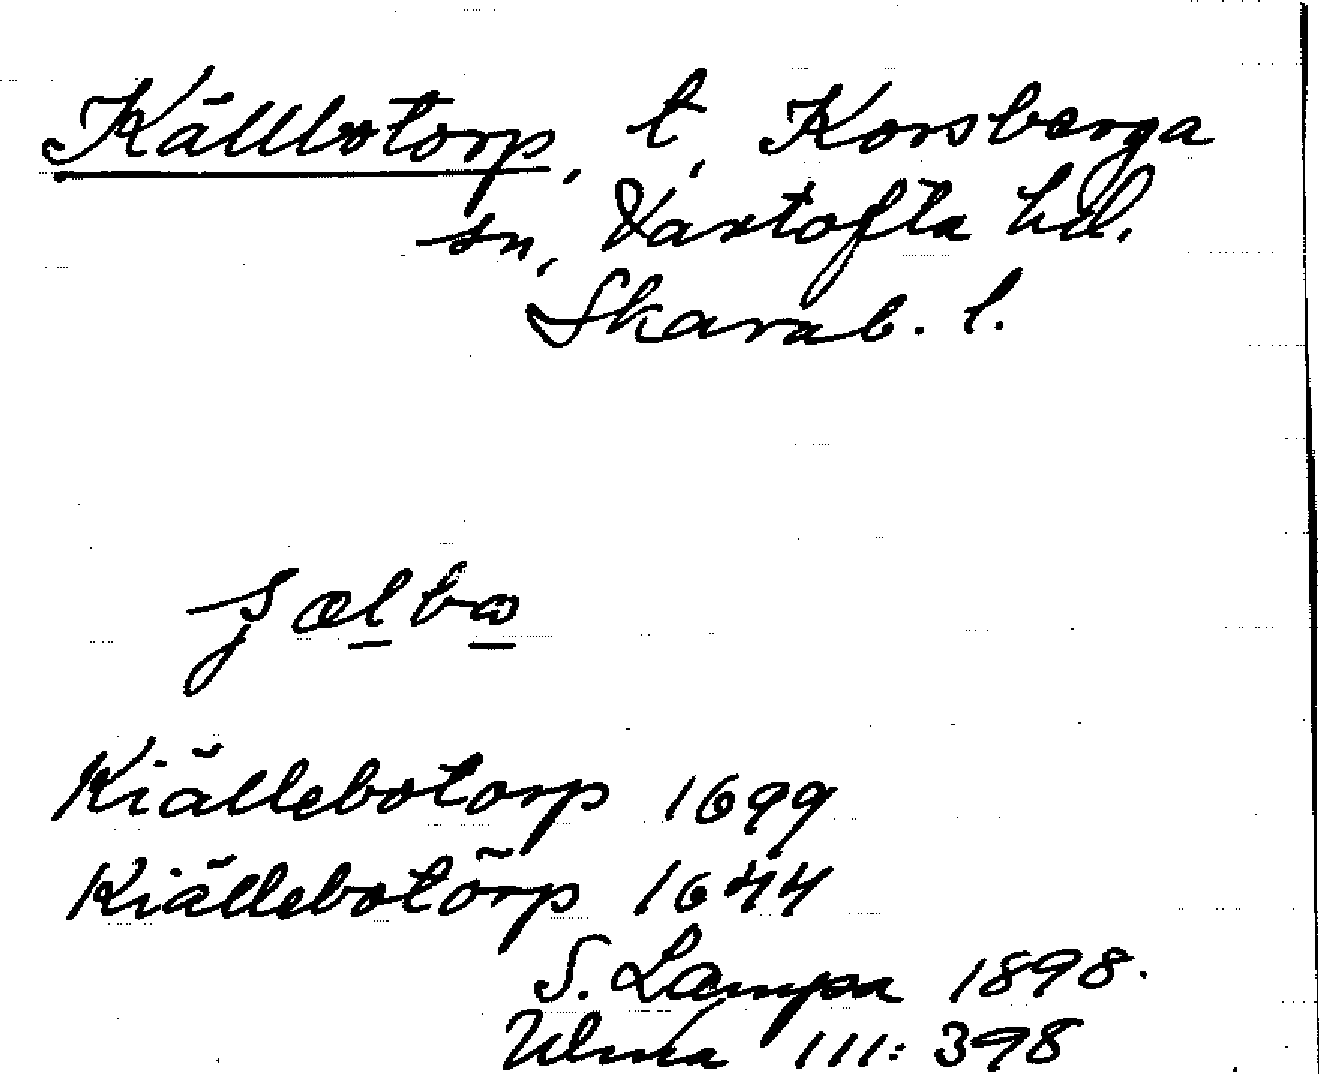 Källbotorp, t, Korsberga
sn, Vartofta hd.
Skarab. l.
Kiällebotorp 1699
Kiällebotörp 1644
S. Lampa 1898.
Ulma 111: 398